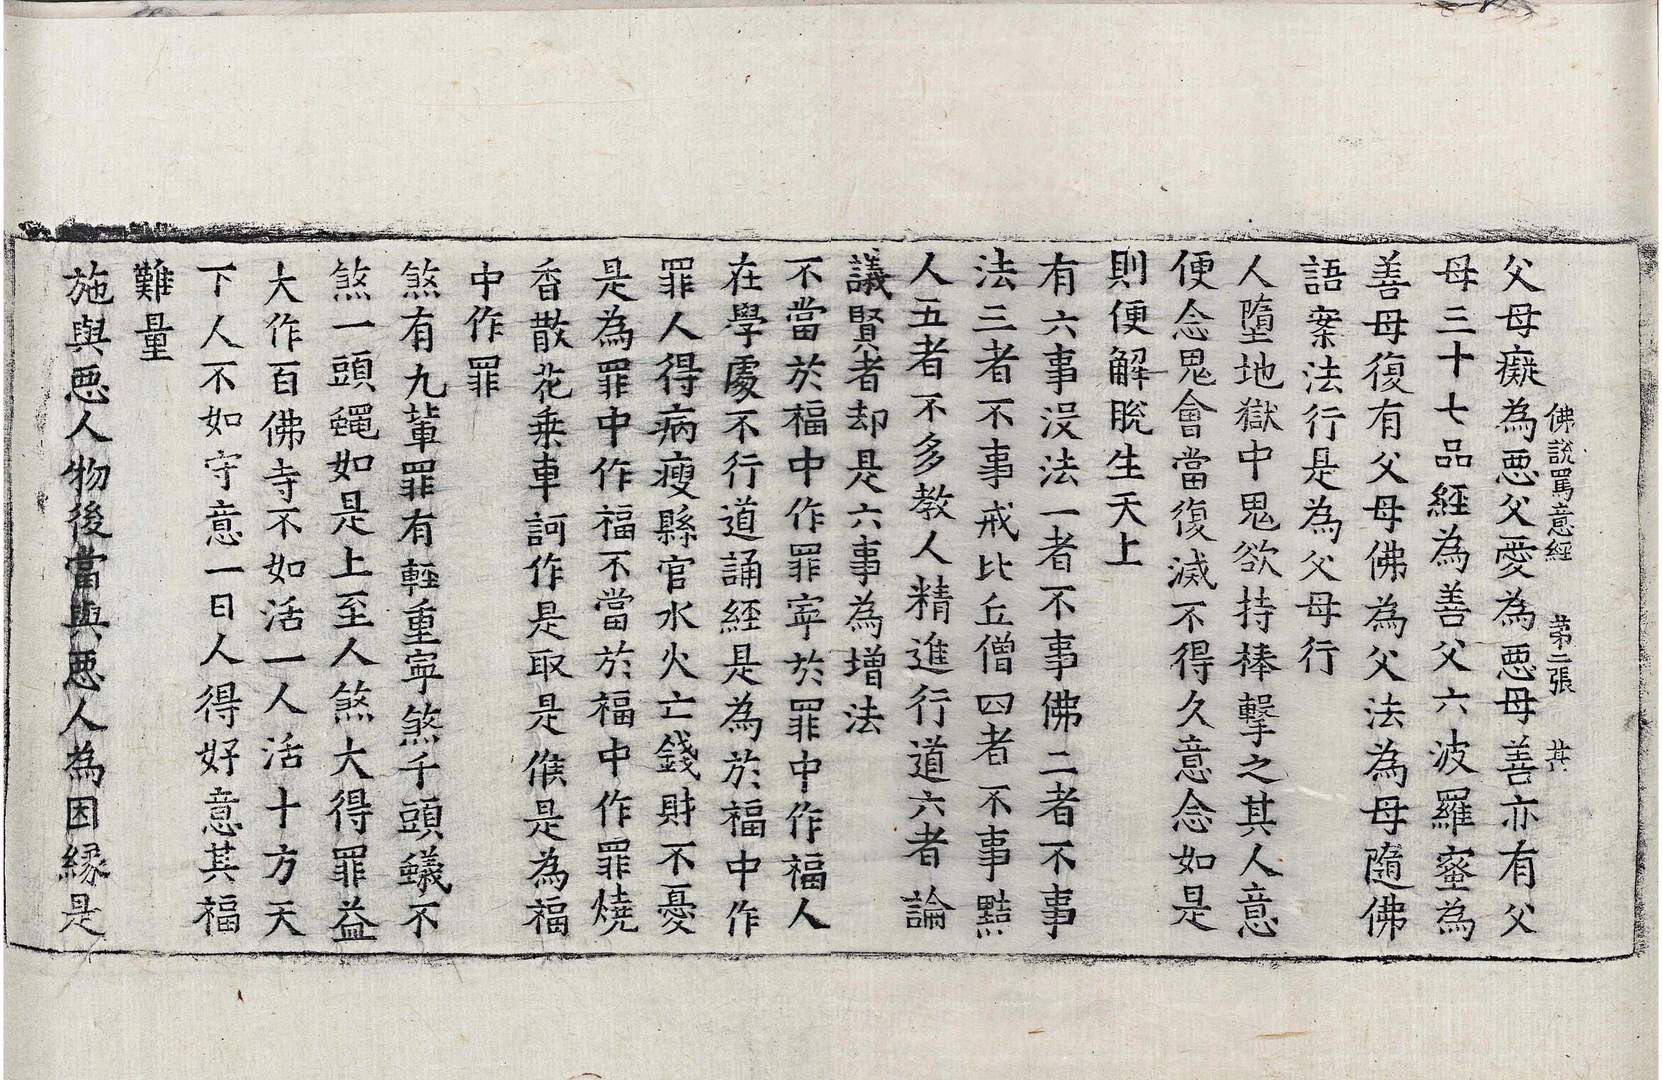 佛說罵意經 第二張 其
父母癡為惡父愛為惡母善亦有父
母三十七品經為善父六波羅蜜為
善母復有父母佛為父法為母隨佛
語案法行是為父母行
人墮地獄中鬼欲持棒擊之其人意
便念鬼會當復滅不得久意念如是
則便解脫生天上
有六事沒法一者不事佛二者不事
法三者不事戒比丘僧四者不事黠
人五者不多教人精進行道六者論
議賢者却是六事為增法
不當於福中作罪寧於罪中作福人
在學處不行道誦經是為於福中作
罪人得病瘦縣官水火亡錢財不憂
是為罪中作福不當於福中作罪燒
香散花乗車訶作是取是倏是為福
中作罪
煞有九輩罪有輕重寧煞千頭蟻不
煞一頭蠅如是上至人煞大得罪益
大作百佛寺不如活一人活十方天
下人不如守意一日人得好意其福
難量
施與惡人物後當與惡人為因緣是